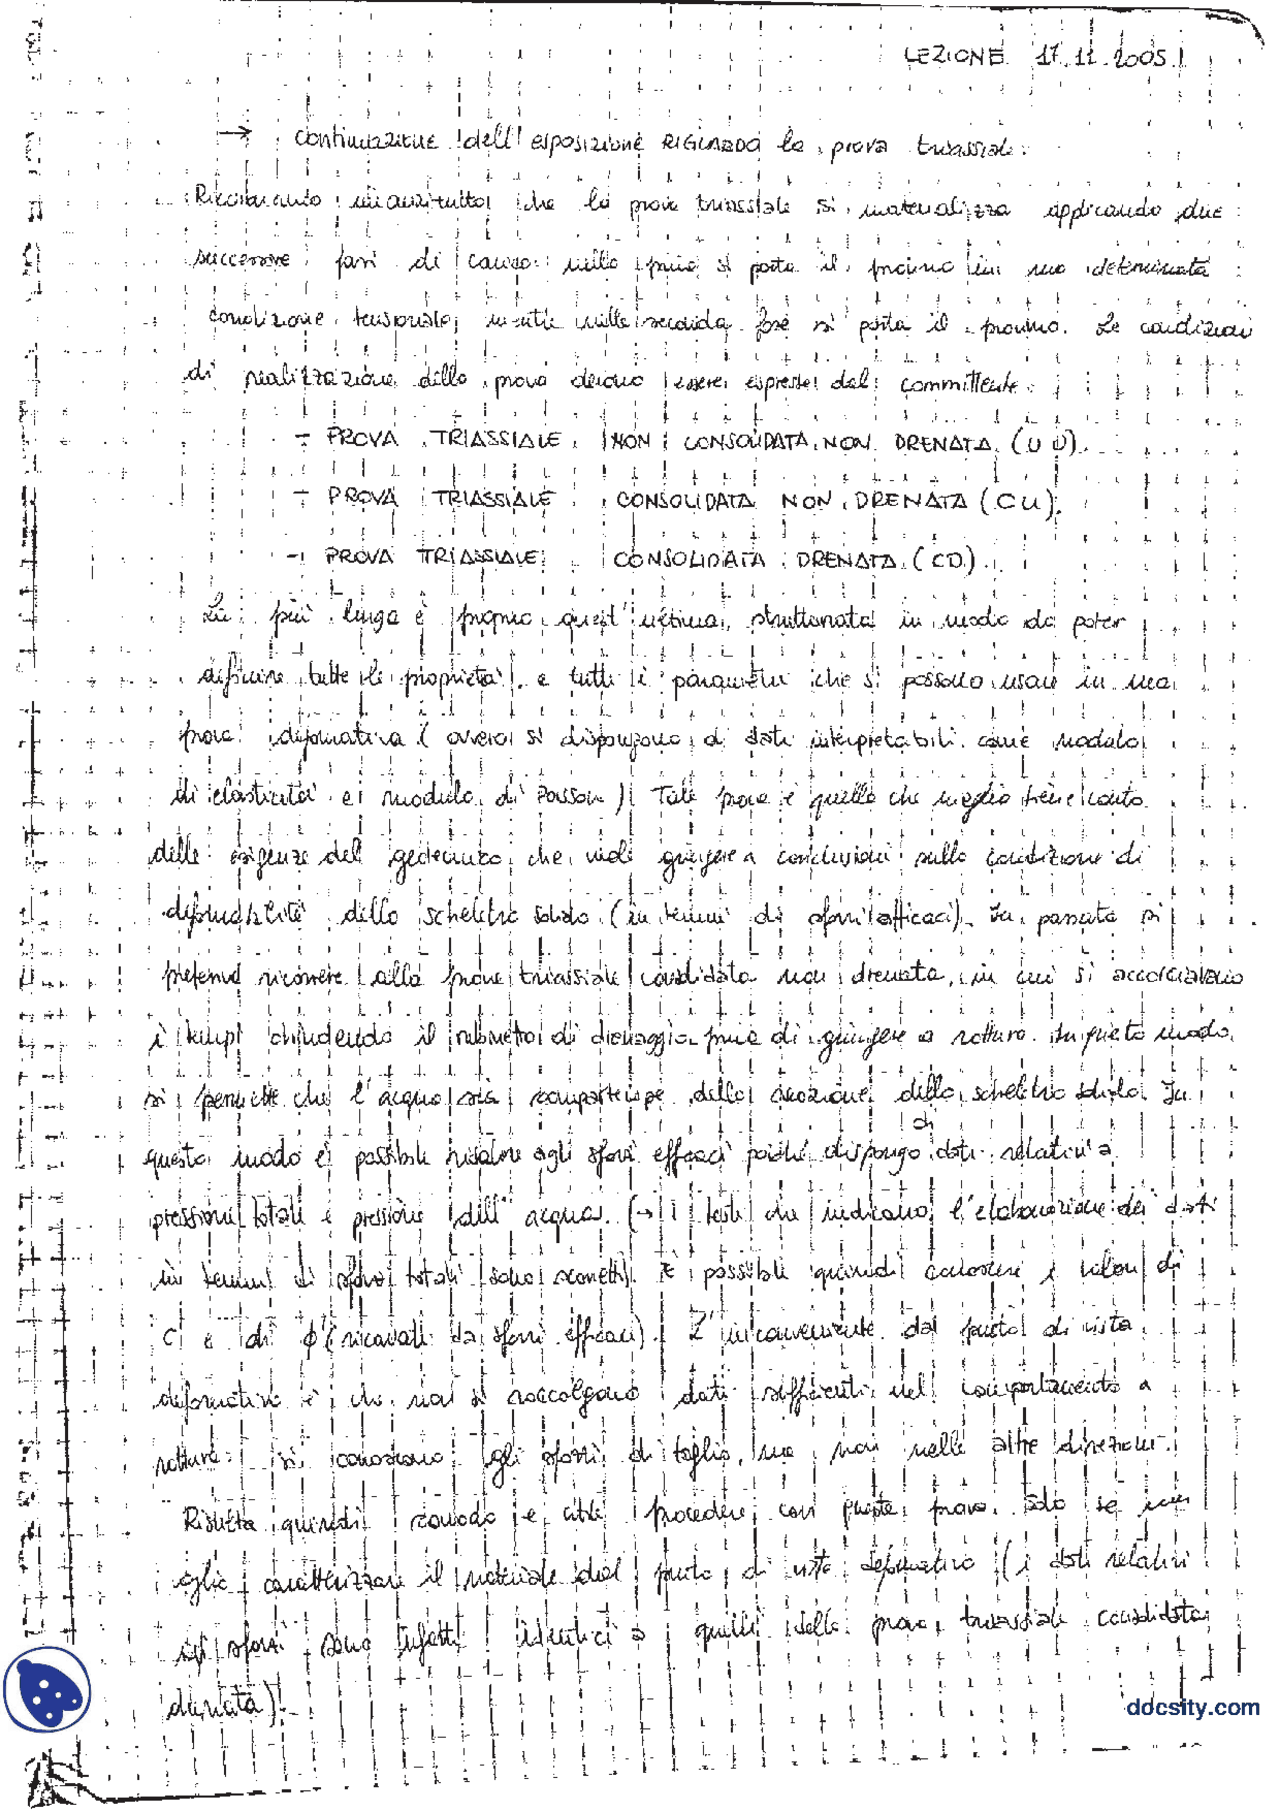 LEZIONE 17.11.2005
→ Continuazione dell'esposizione RIGUARDO la prova triassiale:
Ricordiamo innanzitutto che la prova triassiale si materializza applicando due
successive fasi di carico: nella prima si porta il provino in una determinata
condizione tensionale, mentre nella seconda fase si porta il provino. Le condizioni
di realizzazione della prova devono essere espresse dal committente:
- PROVA TRIASSIALE NON CONSOLIDATA NON DRENATA (UU).
- PROVA TRIASSIALE CONSOLIDATA NON DRENATA (CU).
- PROVA TRIASSIALE CONSOLIDATA DRENATA (CD).
La più lunga è proprio quest'ultima, strutturata in modo da poter
definire tutte le proprietà e tutti i parametri che si possono usare in una
prova deformativa (ovvero si dispongono di dati interpretabili come modulo
di elasticità e modulo di Poisson). Tale prova è quella che meglio tiene conto
delle esigenze del geotecnico che vuole giungere a conclusioni sulla condizione di
deformabilità dello scheletro solido (in termini di sforzi efficaci). In passato si
preferiva ricorrere alla prova triassiale consolidata non drenata, in cui si accorciavano
i tempi chiudendo il rubinetto di drenaggio prima di giungere a rottura. In questo modo
si permette che l'acqua sia compartecipe della reazione dello scheletro solido. In
questo modo è possibile risalire agli sforzi efficaci poiché dispongo di dati relativi a
pressioni totali e pressione dell'acqua. (→ I testi che indicano l'elaborazione dei dati
in termini di sforzi totali sono scorretti). È possibile quindi conoscere i valori di
C' e di ϕ' (ricavati da sforzi efficaci). L'inconveniente dal punto di vista
deformativo è che non si raccolgono dati sufficienti nel comportamento a
rottura: si conoscono gli sforzi di taglio, ma non nelle altre direzioni.
Risulta quindi comodo e utile procedere con questa prova solo se non
voglio caratterizzare il materiale dal punto di vista deformativo (i dati relativi
agli sforzi sono infatti identici a quelli della prova triassiale consolidata
drenata).
docsity.com